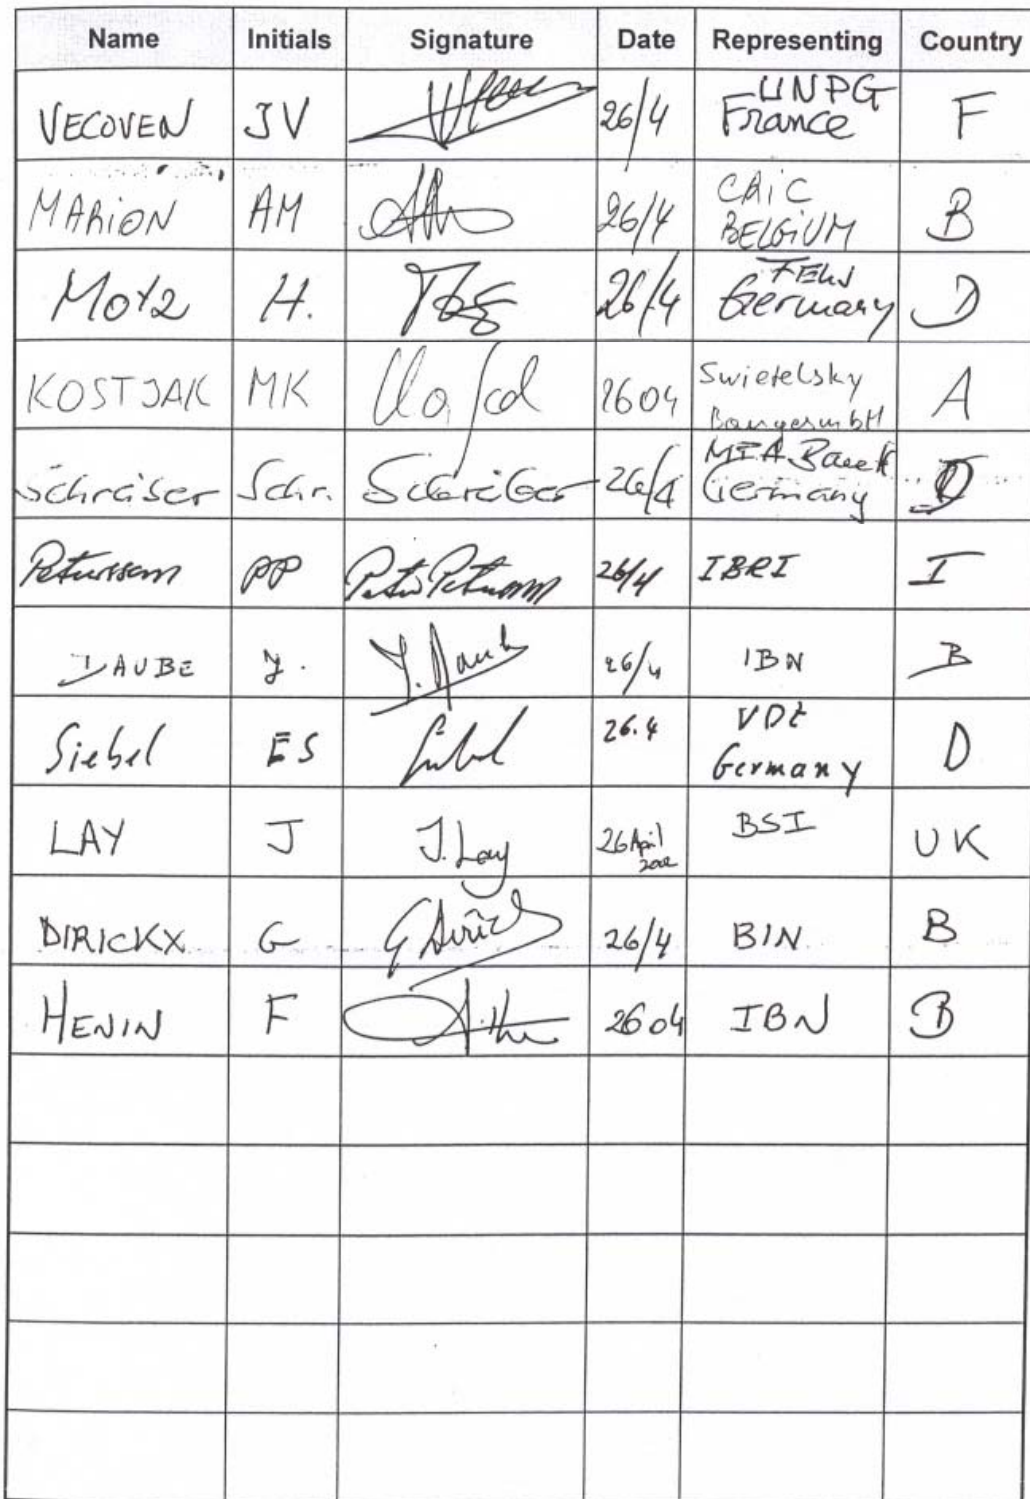 Name Initials Signature Date Representing Country
VECOVEN JV 26/4 UNPG
France F
MARION AM 26/4 CAIC
BELGIUM B
Motz H. 26/4 FEhS
Germany D
KOSTJAK MK 2604 Swietelsky
BaugesmbH A
Schreiber Schr. Schreiber 26/4 MFA
Germany D
Petursson PP Petur Petursson 26/4 IBRI I
DAUBE J. J. Daube 26/4 IBN B
Siebel ES Siebel 26.4 VDZ
Germany D
LAY J J. Lay 26 April
2002 BSI UK
DIRICKX G G Dirickx 26/4 BIN B
HENIN F 2604 IBN B